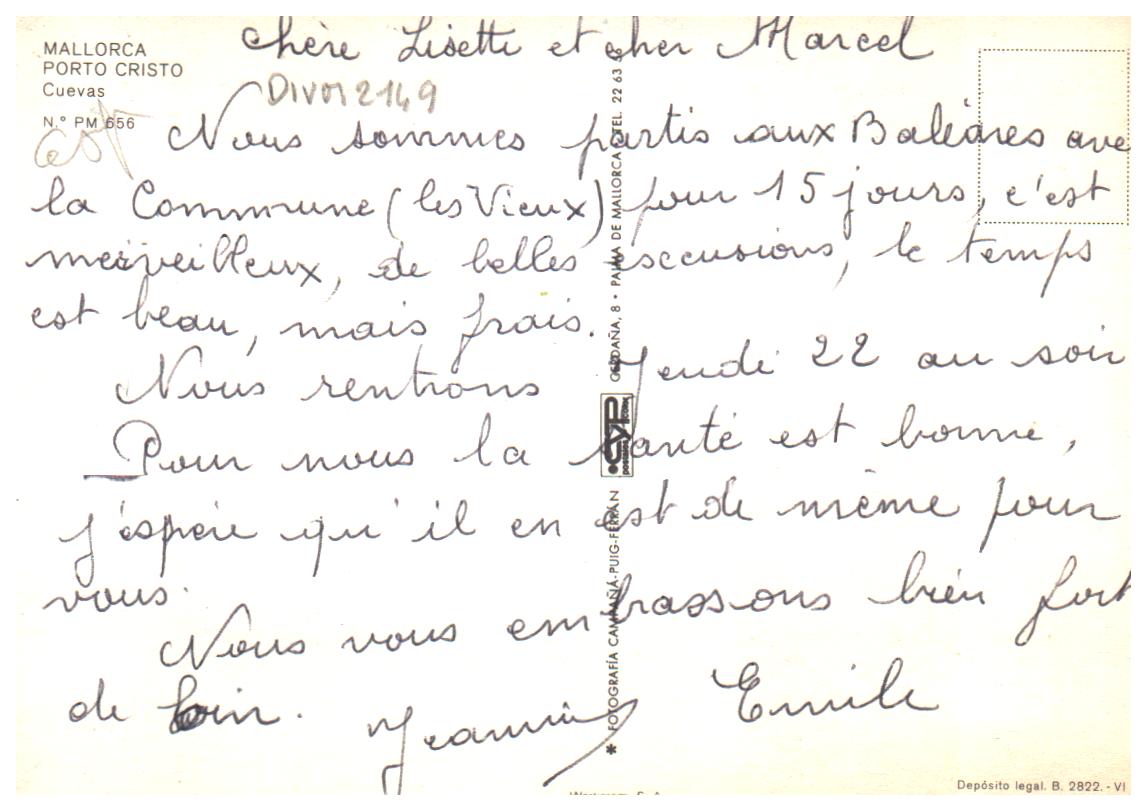 MALLORCA
PORTO CRISTO
Cuevas
N.º PM 656
DIVOI2149
Chère Lisette et cher Marcel
Nous sommes partis aux Baléares ave
la Commune (les Vieux) pour 15 jours, c'est
merveilleux, de belles esccusions, le temps
est beau, mais frais.
Nous rentrons Jeudi 22 au soir
Pour nous la santé est bonne,
j'éspère qu'il en est de même pour
vous.
Nous vous embrassons bien fort
de loin.
Jeannine Emile
* FOTOGRAFÍA CAMPAÑÁ-PUIG-FERRÁN
CYP
postales color
CERDAÑA, 8 • PALMA DE MALLORCA • TEL. 22 63 5
Depósito legal. B. 2822.-VI